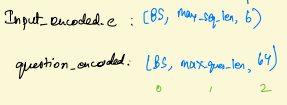 Input_encoded_c : (BS, max_seq_len, 6)
question_encoded : (BS, max_ques_len, 64)
0 1 2